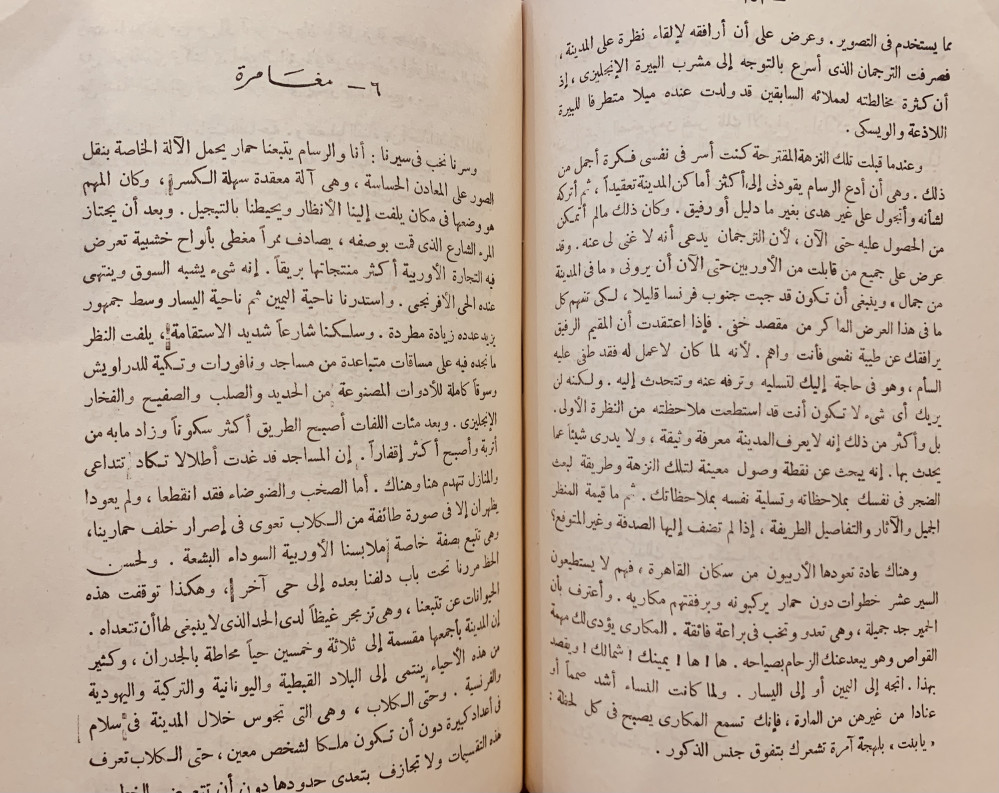 مما يستخدم فى التصوير . وعرض على أن أرافقه لإلقاء نظرة على المدينة ،
فصرفت الترجمان الذى أسرع بالتوجه إلى مشرب البيرة الإنجليزى ، إذ
أن كثرة مخالطته لعملائه السابقين قد ولدت عنده ميلا متطرفا للبيرة
اللاذعة والويسكى .
وعندما قبلت تلك النزهة المقترحة كنت أسر فى نفسى فكرة أجمل من
ذلك . وهى أن أدع الرسام يقودنى إلى أكثر أماكن المدينة تعقيداً ، ثم أتركه
لشأنه وأتجول على غير هدى بغير ما دليل أو رفيق . وكان ذلك مالم أتمكن
من الحصول عليه حتى الآن ، لأن الترجمان يدعى أنه لا غنى لى عنه . وقد
عرض على جميع من قابلت من الأوربيين حتى الآن أن يرونى « ما فى المدينة
من جمال » وينبغى أن تكون قد جبت جنوب فرنسا قليلا ، لكى تتفهم كل
ما فى هذا العرض الماكر من مقصد خفى . فإذا اعتقدت أن المقيم الرفيق
يرافقك عن طيبة نفسى فأنت واهم . لأنه لما كان لاعمل له فقد طغى عليه
السأم ، وهو فى حاجة إليك لتسليه وترفه عنه وتتحدث إليه . ولكنه لن
يريك أى شىء لا تكون أنت قد استطعت ملاحظته من النظرة الأولى.
بل وأكثر من ذلك إنه لايعرف المدينة معرفة وثيقة ، ولا يدرى شيئاً عما
يحدث بها . إنه يبحث عن نقطة وصول معينة لتلك النزهة وطريقة لبعث
الضجر فى نفسك بملاحظاته وتسلية نفسه بملاحظاتك . ثم ما قيمة المنظر
الجميل والآثار والتفاصيل الطريفة ، إذا لم تضف إليها الصدفة وغير المتوقع؟
وهناك عادة تعودها الأربيون من سكان القاهرة ، فهم لا يستطيعون
السير عشر خطوات دون حمار يركبونه وبرفقتهم مكاريه . وأعترف بأن
الحمير جد جميلة ، وهى تعدو وتخب فى براعة فائقة . المكارى يؤدى لك مهمة
القواص وهو يبعد عنك الزحام بصياحه . ها ! ها ! يمينك ! شمالك ! ويقصد
بهذا . اتجه إلى اليمين أو إلى اليسار . ولما كانت النساء أشد صمماً أو
عنادا من غيرهن من المارة ، فإنك تسمع المكارى يصيح فى كل لحظة :
« يابنت ، بلهجة آمرة تشعرك بتفوق جنس الذكور .
٦ - مغامرة
وسرنا نخب فى سيرنا : أنا والرسام يتبعنا حمار يحمل الآلة الخاصة بنقل
الصور على المعادن الحساسة ، وهى آلة معقدة سهلة الكسر ، وكان المهم
هو وضعها فى مكان يلفت إلينا الأنظار ويحيطنا بالتبجيل . وبعد أن يجتاز
المرء الشارع الذى قمت بوصفه ، يصادف ممراً مغطى بألواح خشبية تعرض
فيه التجارة الأوربية أكثر منتجاتها بريقاً . إنه شىء يشبه السوق وينتهى
عنده الحى الأفرنجى . واستدرنا ناحية اليمين ثم ناحية اليسار وسط جمهور
يزيد عدده زيادة مطردة . وسلكنا شارعاً شديد الاستقامة ، يلفت النظر
ما نجده فيه على مسافات متباعدة من مساجد ونافورات وتكية للدراويش
وسوقاً كاملة للأدوات المصنوعة من الحديد والصلب والصفيح والفخار
الإنجليزى . وبعد مئات اللفات أصبح الطريق أكثر سكوناً وزاد مابه من
أتربة وأصبح أكثر إقفاراً . إن المساجد قد غدت أطلالا تكاد تتداعى
والمنازل تتهدم هنا وهناك . أما الصخب والضوضاء فقد انقطعا ، ولم يعودا
يظهران إلا فى صورة طائفة من الكلاب تعوى فى إصرار خلف حمارينا،
وهى تتبع بصفة خاصة ملابسنا الأوربية السوداء البشعة . ولحسن
الحظ مررنا تحت باب دلفنا بعده إلى حى آخر ، وهكذا توقفت هذه
الحيوانات عن تتبعنا ، وهى تزمجر غيظاً لدى الحد الذى لا ينبغى لها أن تتعداه .
إن المدينة بأجمعها مقسمة إلى ثلاثة وخمسين حياً محاطة بالجدران ، وكثير
من هذه الأحياء ينتمى إلى البلاد القبطية واليونانية والتركية واليهودية
والفرنسية . وحتى الكلاب ، وهى التى تجوس خلال المدينة فى سلام
فى أعداد كبيرة دون أن تكون ملكا لشخص معين ، حتى الكلاب تعرف
هذه التقسيمات ولا تجازف بتعدى حدودها دون أن